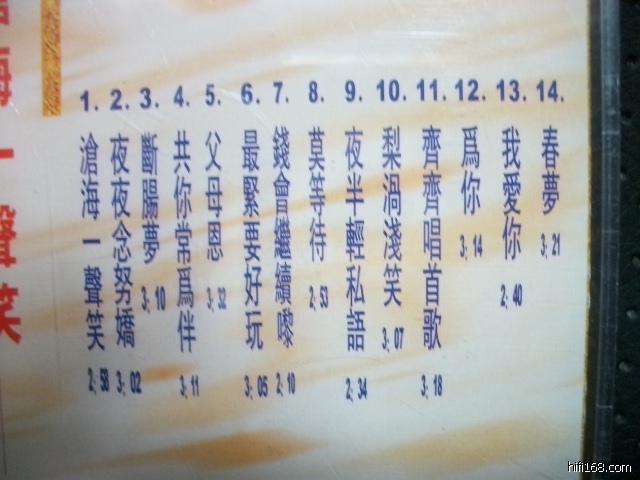 滄海一聲笑
1. 滄海一聲笑 2;58
2. 夜夜念努嬌 3;02
3. 斷腸夢 3;10
4. 共你常爲伴 3;11
5. 父母恩 3;32
6. 最緊要好玩 3;05
7. 錢會繼續嚟 2;10
8. 莫等待 2;53
9. 夜半輕私語 2;34
10. 梨渦淺笑 3;07
11. 齊齊唱首歌 3;18
12. 爲你 3;14
13. 我愛你 2;40
14. 春夢 3;21
hifi168.com